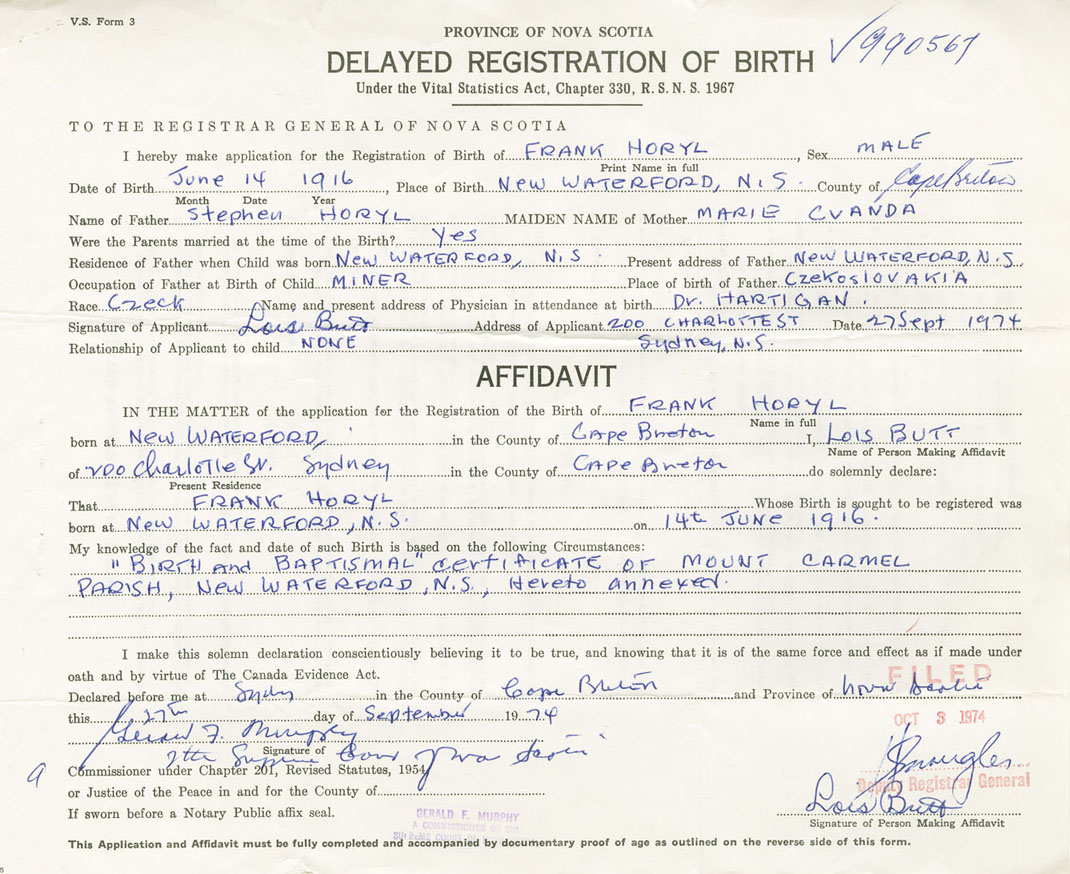 V.S. Form 3
PROVINCE OF NOVA SCOTIA
DELAYED REGISTRATION OF BIRTH
√990567
Under the Vital Statistics Act, Chapter 330, R. S. N. S. 1967
TO THE REGISTRAR GENERAL OF NOVA SCOTIA
I hereby make application for the Registration of Birth of FRANK HORYL, Sex MALE
Print Name in full
Date of Birth June 14 1916, Place of Birth New WATERFORD, N.S. County of Cape Breton
Month Date Year
Name of Father Stephen HORYL MAIDEN NAME of Mother MARIE CVANDA
Were the Parents married at the time of the Birth? Yes
Residence of Father when Child was born New WATERFORD, N.S. Present address of Father New WATERFORD, N.S.
Occupation of Father at Birth of Child MINER Place of birth of Father CzekosLOVAKIA
Race Czeck Name and present address of Physician in attendance at birth Dr. HARTIGAN.
Signature of Applicant Lois Butt Address of Applicant 200 CHARLOTTE ST Date 27 Sept 1974
Relationship of Applicant to child NONE Sydney, N.S.
AFFIDAVIT
IN THE MATTER of the application for the Registration of the Birth of FRANK HORYL
Name in full
born at New WATERFORD, in the County of Cape Breton I, LOIS BUTT
Name of Person Making Affidavit
of 200 Charlotte St. Sydney in the County of Cape Breton do solemnly declare:
Present Residence
That FRANK HORYL Whose Birth is sought to be registered was
born at New WATERFORD, N.S. on 14th JUNE 1916.
My knowledge of the fact and date of such Birth is based on the following Circumstances:
"BIRTH and BAPTISMAL" certificate OF MOUNT CARMEL
PARISH, New WATERFORD, N.S., Hereto annexed.
I make this solemn declaration conscientiously believing it to be true, and knowing that it is of the same force and effect as if made under
oath and by virtue of The Canada Evidence Act.
FILED
Declared before me at Sydney in the County of Cape Breton and Province of Nova Scotia
this 27th day of September 1974
OCT 3 1974
Gerald F. Murphy
Signature of
of the Supreme Court of Nova Scotia
Commissioner under Chapter 201, Revised Statutes, 1954
Deputy Registrar General
or Justice of the Peace in and for the County of
Lois Butt
If sworn before a Notary Public affix seal.
GERALD F. MURPHY
A COMMISSIONER OF THE
SUPREME COURT OF
Signature of Person Making Affidavit
This Application and Affidavit must be fully completed and accompanied by documentary proof of age as outlined on the reverse side of this form.